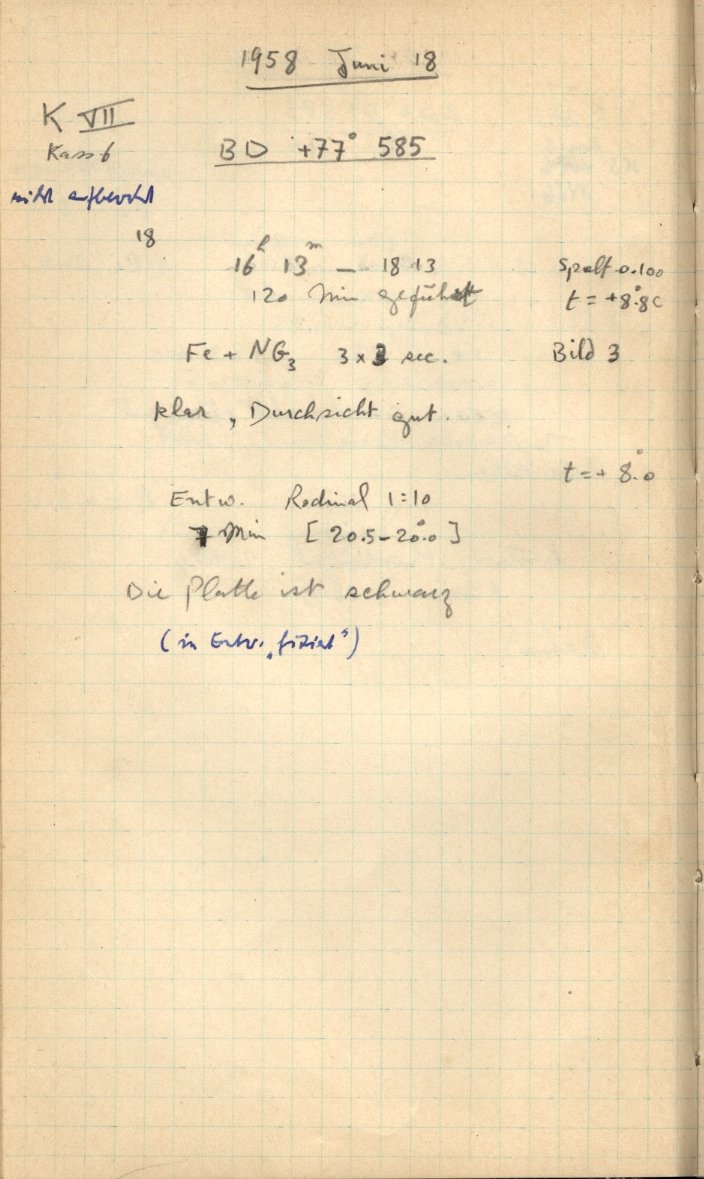 1958 Juni 18
K VII
Kass 6
BD +77° 585
nicht aufbewahrt
18
16h 13m — 18 13 Spalt 0.100
120 Min geführt t = +8.°8 C
Fe + NG3 3 x 3 sec. Bild 3
klar, Durchsicht gut.
t = + 8.°0
Entw. Rodinal 1:10
7 Min [20.5 - 20.°0]
Die Platte ist schwarz
(in Entw. „fixiert")